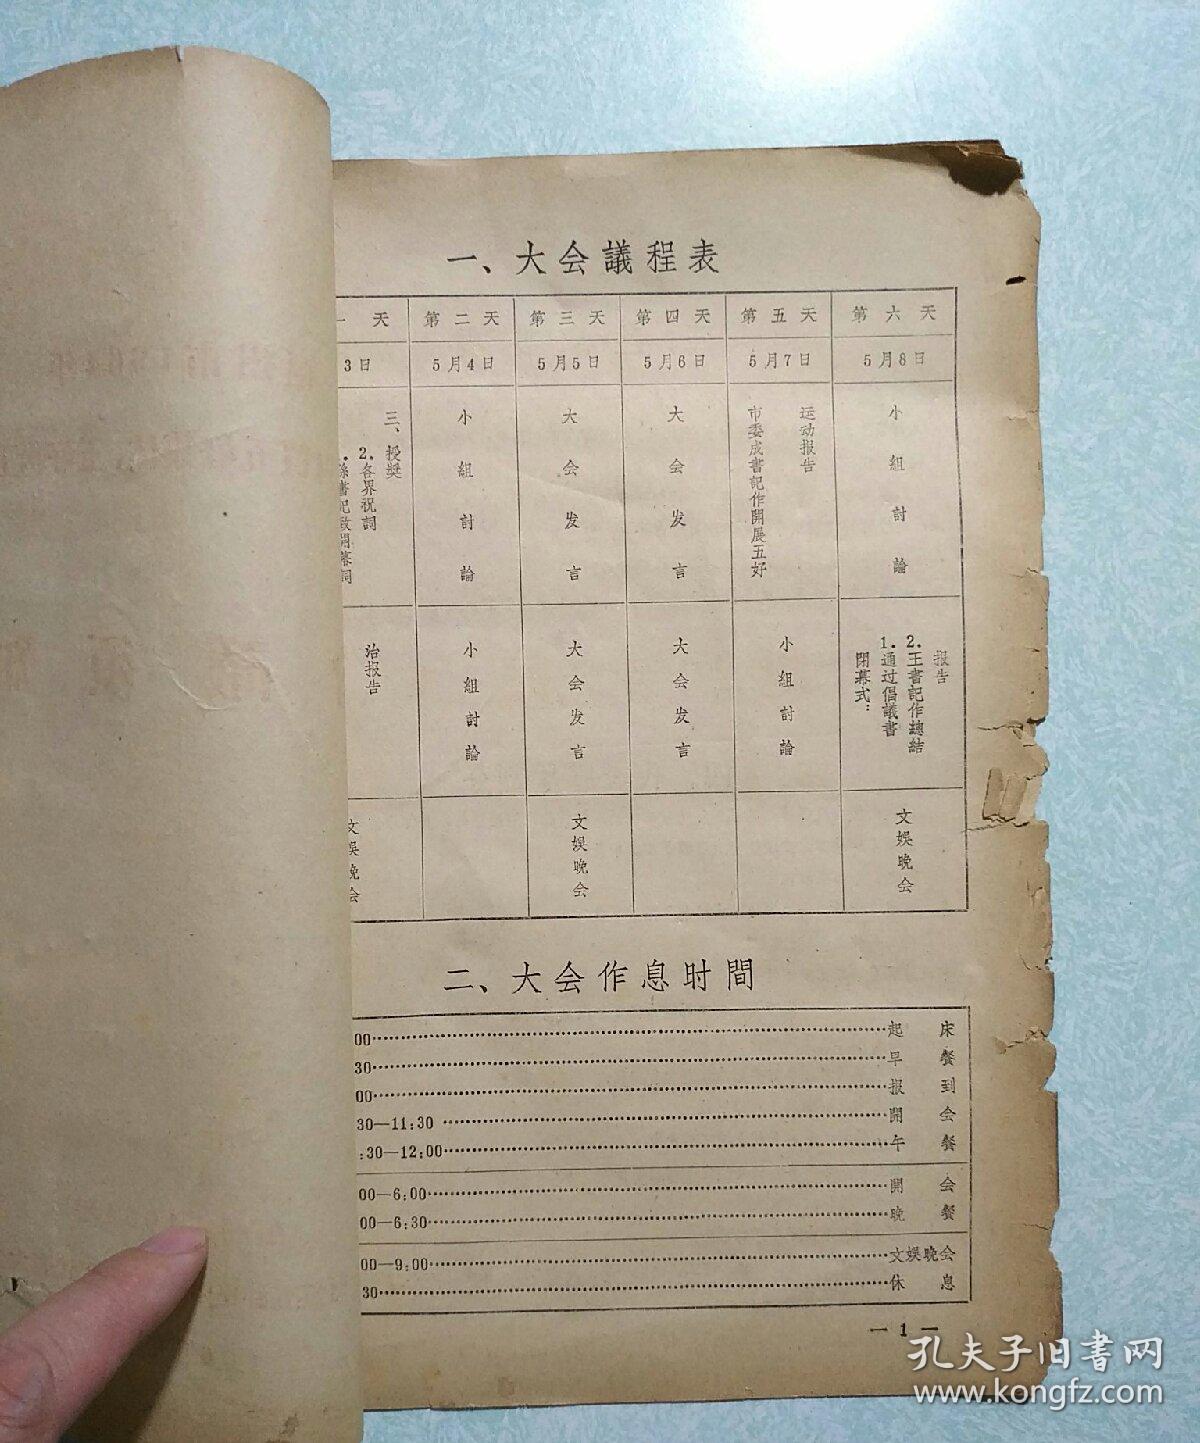 一、大会議程表
天 第二天 第三天 第四天 第五天 第六天
3日 5月4日 5月5日 5月6日 5月7日 5月8日
三、授奬
2.各界祝詞
書記致開幕詞
小組討論
大会发言
大会发言
运动报告
市委成書記作開展五好
小組討論
治报告
小組討論
大会发言
大会发言
小組討論
报告
2.王書記作總結
1.通过倡議書
閉幕式：
文娱晚会
文娱晚会
文娱晚会
二、大会作息时間
00……起床
30……早餐
00……报到
30—11:30……開会
:30—12:00……午餐
00—6:00……開会
00—6:30……晚餐
00—9:00……文娱晚会
30……休息
— 1 —
孔夫子旧書网
www.kongfz.com